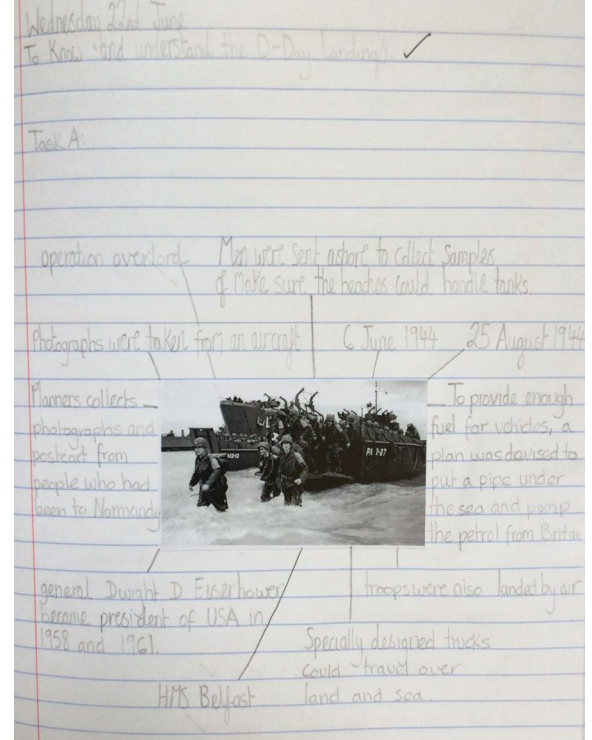 Wednesday 22nd June
To Know and understand the D-Day landings.
Task A:
operation overlord
Men were sent ashore to collect samples
of make sure the beaches could handle tanks.
Photographs were taken from an aurcraft
6 June 1944
25 August 1944
Planners collects
photographs and
postcart from
people who had
been to Normandy
PA 1-27
To provide enough
fuel for vehicles, a
plan was davised to
put a pipe under
the sea and pump
the petrol from Britan
general Dwight D Eiserhower
became president of USA in
1958 and 1961.
troops were also landed by air
Specially designed trucks
could travel over
land and sea
HMS Belfast